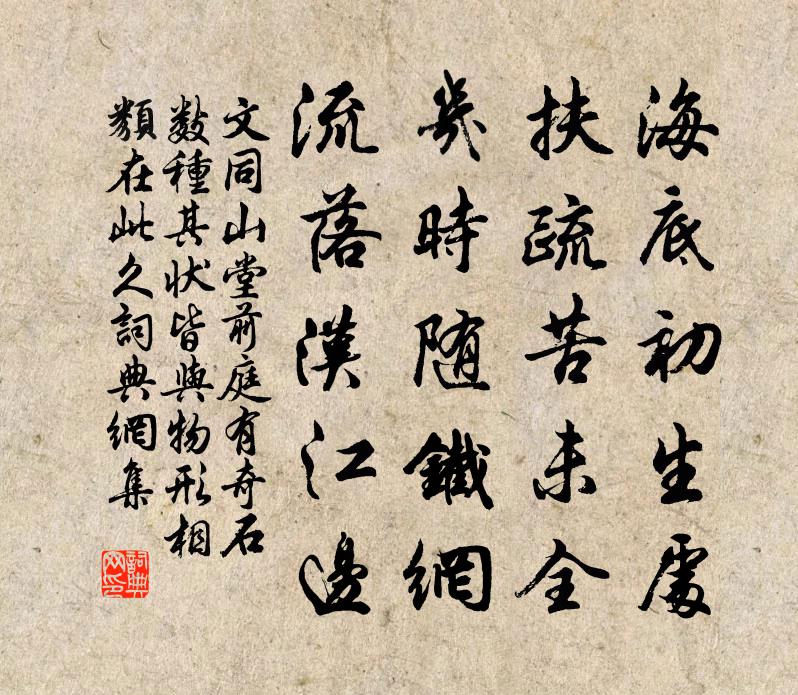 海底初生處
扶疏苦未全
幾時隨鐵網
流落漢江邊
文同山堂前庭有奇石
數種其狀皆與物形相
類在此久詞典網集
詞典網印